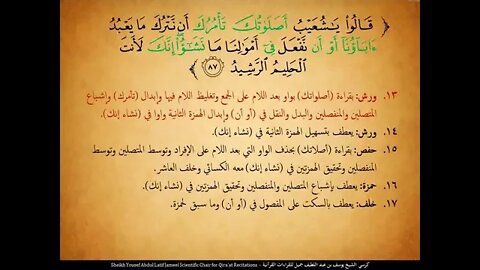 ﴿ قَالُوا۟ يَٰشُعَيْبُ أَصَلَوَٰتُكَ تَأْمُرُكَ أَن نَّتْرُكَ مَا يَعْبُدُ
ءَابَآؤُنَآ أَوْ أَن نَّفْعَلَ فِىٓ أَمْوَٰلِنَا مَا نَشَٰٓؤُا۟ إِنَّكَ لَأَنتَ
ٱلْحَلِيمُ ٱلرَّشِيدُ ٨٧ ﴾
١٣. ورش: بقراءة (أصلواتك) بواو بعد اللام على الجمع وتغليظ اللام فيها وإبدال (تأمرك) وإشباع
المتصلين والمنفصلين والبدل والنقل في (أو أن) وإبدال الهمزة الثانية واوا في (نشاء إنك).
١٤. ورش: يعطف بتسهيل الهمزة الثانية في (نشاء إنك).
١٥. حفص: بقراءة (أصلاتك) بحذف الواو التي بعد اللام على الإفراد وتوسط المتصلين وتوسط
المنفصلين وتحقيق الهمزتين في (نشاء إنك) معه الكسائي وخلف العاشر.
١٦. حمزة: يعطف بإشباع المتصلين والمنفصلين وتحقيق الهمزتين في (نشاء إنك).
١٧. خلف: يعطف بالسكت على المفصول في (أو أن) وما سبق لحمزة.
Sheikh Yousef Abdul Latif Jameel Scientific Chair for Qira'at Recitations - كرسي الشيخ يوسف بن عبد اللطيف جميل للقراءات القرآنية